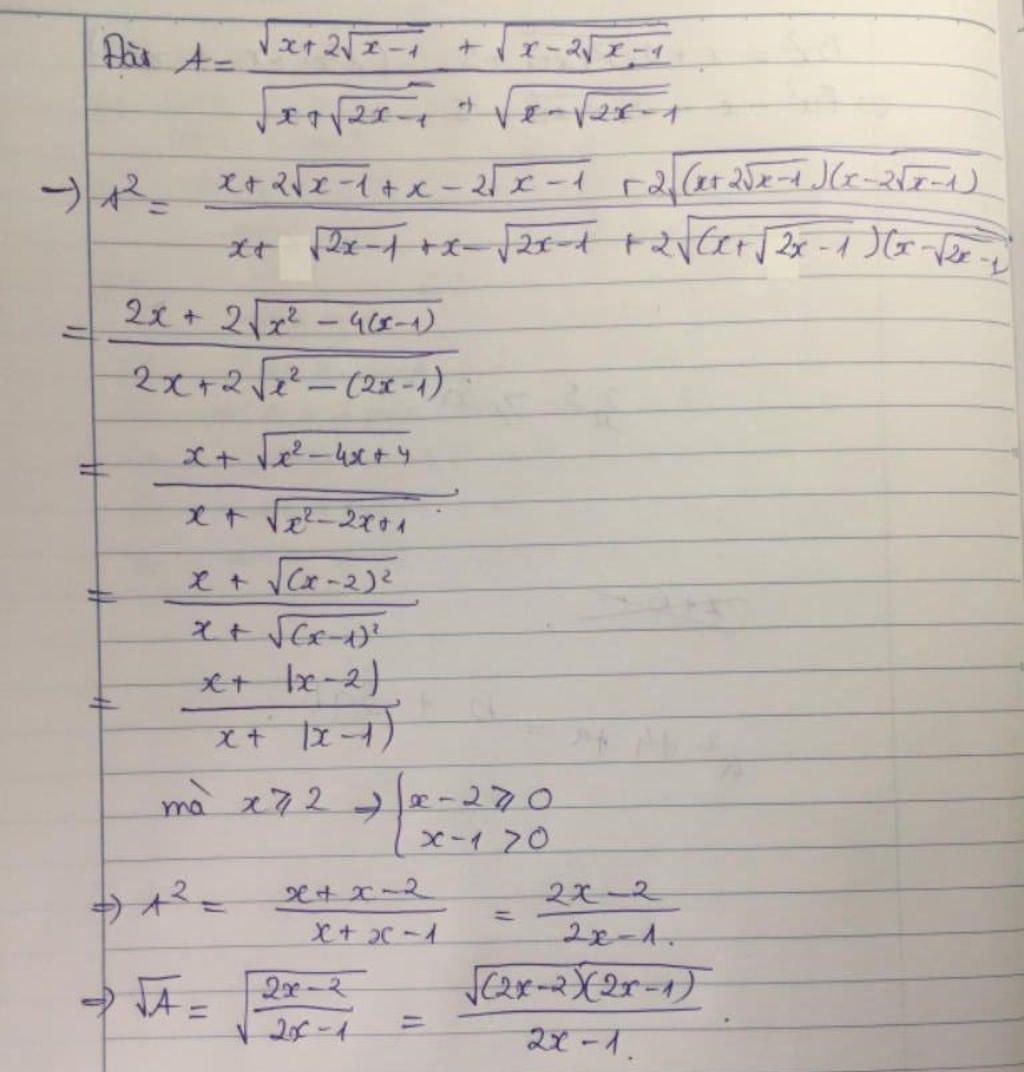 Đặt A = \frac{\sqrt{x+2\sqrt{x-1}} + \sqrt{x-2\sqrt{x-1}}}{\sqrt{x+\sqrt{2x-1}} + \sqrt{x-\sqrt{2x-1}}}
→ A^2 = \frac{x+2\sqrt{x-1}+x-2\sqrt{x-1} + 2\sqrt{(x+2\sqrt{x-1})(x-2\sqrt{x-1})}}{x+\sqrt{2x-1}+x-\sqrt{2x-1} + 2\sqrt{(x+\sqrt{2x-1})(x-\sqrt{2x-1}}}
= \frac{2x+2\sqrt{x^2-4(x-1)}}{2x+2\sqrt{x^2-(2x-1)}}
= \frac{x+\sqrt{x^2-4x+4}}{x+\sqrt{x^2-2x+1}}
= \frac{x+\sqrt{(x-2)^2}}{x+\sqrt{(x-1)^2}}
= \frac{x+|x-2|}{x+|x-1|}
mà x ⩾ 2 → { x-2 ⩾ 0
x-1 > 0
⇒ A^2 = \frac{x+x-2}{x+x-1} = \frac{2x-2}{2x-1}.
⇒ \sqrt{A} = \sqrt{\frac{2x-2}{2x-1}} = \frac{\sqrt{(2x-2)(2x-1)}}{2x-1}.